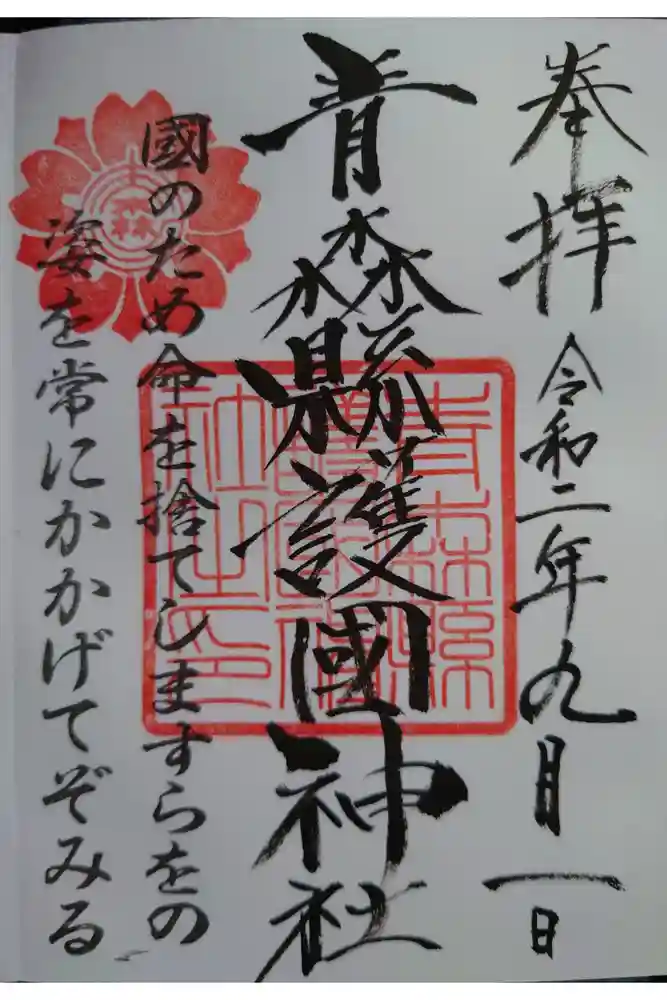 奉拝
令和二年九月一日
青森縣護國神社
青森縣
護國神
社之印
國のため命を捨てしますらをの
姿を常にかかげてぞみる